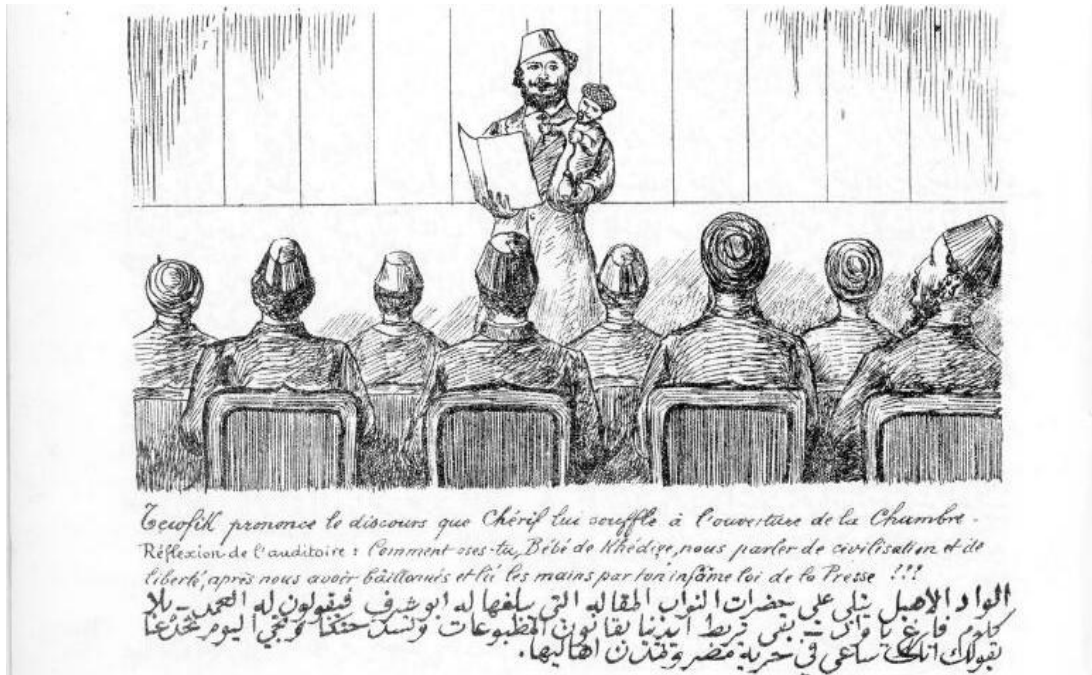 Tewfik prononce le discours que Chérif lui souffle à l'ouverture de la Chambre.
Réflexion de l'auditoire : Comment oses-tu, Bébé de Khédige, nous parler de civilisation et de
liberté, après nous avoir bâillonnés et lié les mains par ton infâme loi de la Presse !!!
الواد الاهبل يتلى على حضرات النواب المقاله التى يبلغها له ابو شرف فيقولون له العمد - بلا
كلام فارغ يا واد - بقى تربط ايدينا بقانون المطبوعات وتسد حنكنا وتيجي اليوم تخدعنا
بقولك انك ساعى فى حرية مصر وتمدن اهاليها.